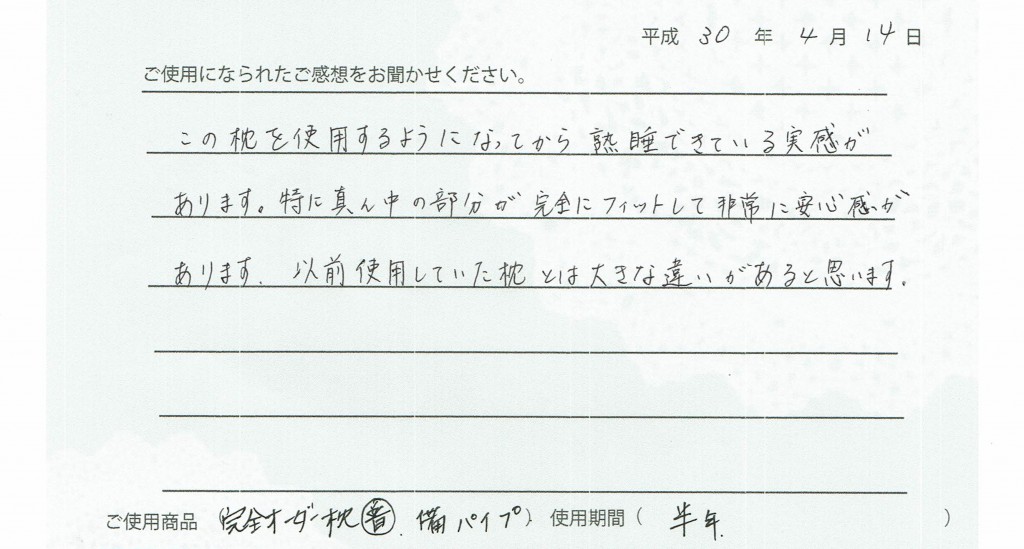 平成 30 年 4 月 14 日
ご使用になられたご感想をお聞かせください。
この枕を使用するようになってから 熟睡できている実感が
あります。特に真ん中の部分が 完全にフィットして非常に安心感が
あります. 以前使用していた枕とは大きな違いがあると思います。
ご使用商品 完全オーダー枕 備 パイプ) 使用期間 ( 半年 )